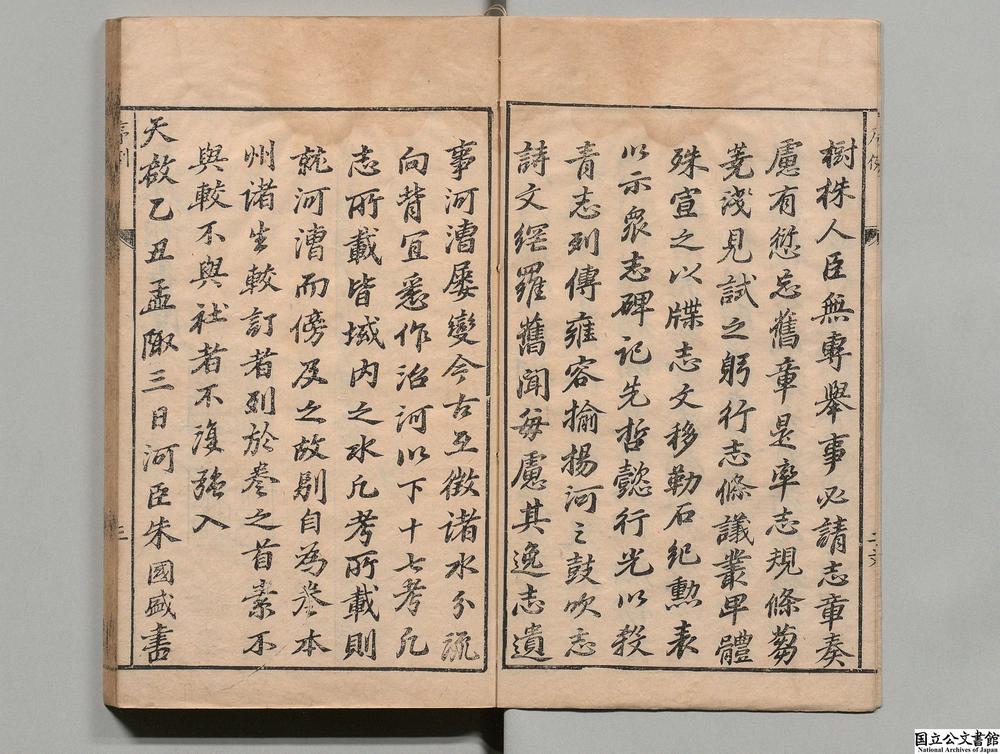 樹株人臣無專舉事必請志章奏
慮有愆忘舊章是率志規條芻
蕘淺見試之躬行志條議叢畢體
殊宣之以牒志文移勒石紀勳表
以示衆志碑記先哲懿行光以殺
青志列傳雍容揄揚河之鼓吹志
詩文網羅舊聞毎慮其逸志遺
事河漕屡變今古互徵諸水分流
向背宜悉作治河以下十七考凡
志所載皆域内之水凡考所載則
就河漕而傍及之故别自為卷本
州诸生較訂者列於卷之首素不
與較不與社者不復強入
天啟乙丑孟陬三日河臣朱國盛書
国立公文書館
National Archives of Japan